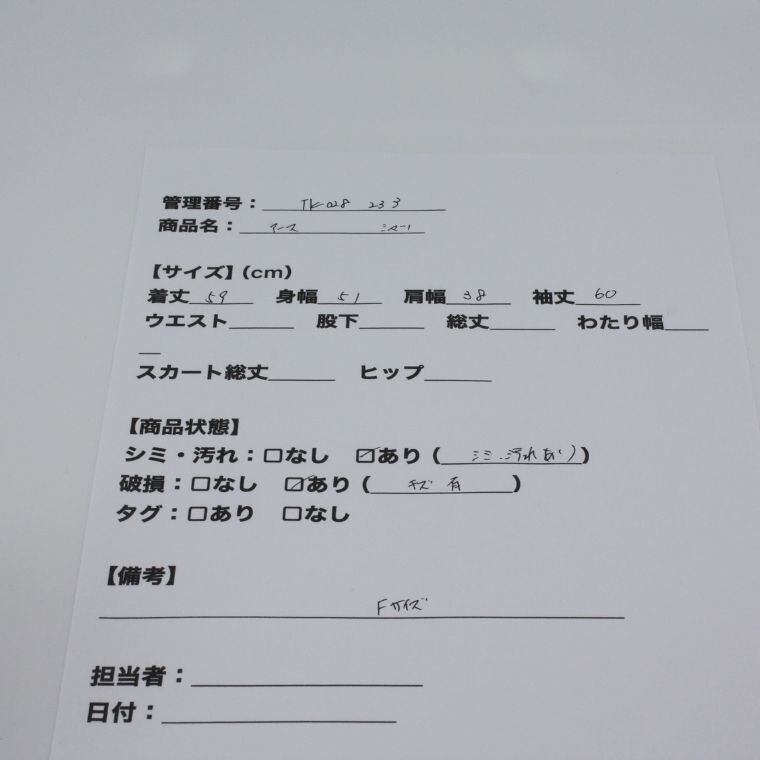 管理番号： TK-028 233
商品名： アース シャツ
【サイズ】(cm)
着丈 59 身幅 51 肩幅 38 袖丈 60
ウエスト 股下 総丈 わたり幅
スカート総丈 ヒップ
【商品状態】
シミ・汚れ：□なし ☑あり（シミ・汚れあり）
破損：□なし ☑あり（キズ 有）
タグ：□あり □なし
【備考】
Fサイズ
担当者：
日付：